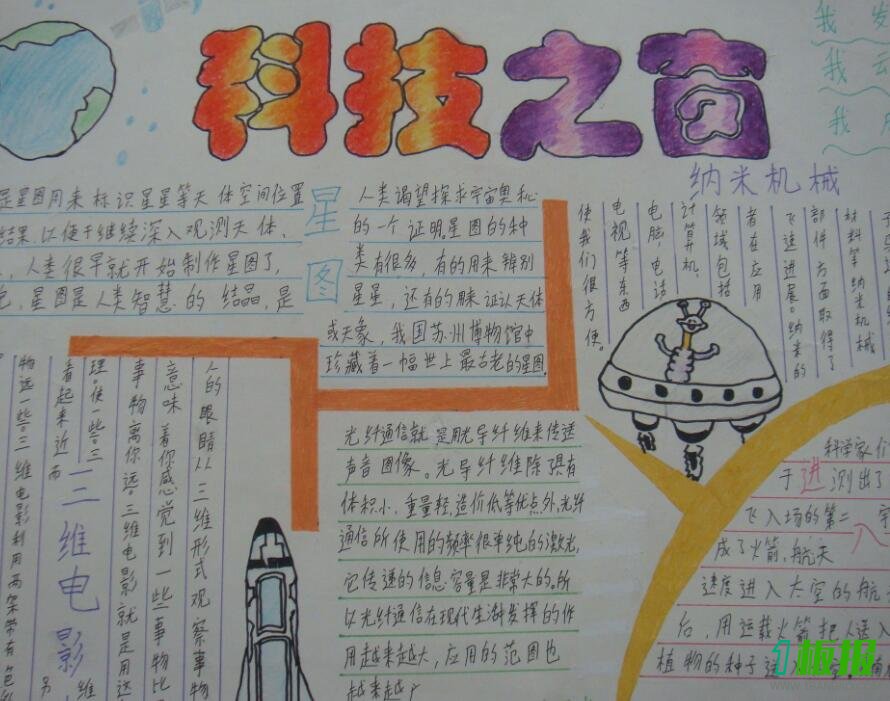 科技之窗
我 发
我
我
是星图用来标识星星等天体空间位置
结果.以便于继续深入观测天体.
、人类很早就开始制作星图了,
,星图是人类智慧的结晶,是
星图
人类渴望探求宇宙奥秘
的一个证明.星图的种
类有很多,有的用来辨别
星星,还有的用来证认天体
或天象,我国苏州博物馆中
珍藏着一幅世上最古老的星图.
纳米机械
材料等纳米机械
部件方面取得了
飞速进展。纳米的
者在应用
领域包括
计算机、
电脑,电话
电视等东西
使我们很方便。
人的眼睛以三维形式观察事物
意味着你感觉到一些事物比
事物离你远。三维电影就是用这
理。使一些。三维
看起来近而
三维电影
物远一些。三维电影利用两架带有色
光纤通信就是用光导纤维来传送
声音图像。光导纤维除了具有
体积小、重量轻,造价低等优点外,光纤
通信所使用的频率很单纯的激光,
它传递的信息容量是非常大的.所
以光纤通信在现代生活中发挥的作
用越来越大,应用的范围也
越来越广
科学家们
于进测出了
飞入场的第二宇
成了火箭、航天
速度进入太空的航
后,用运载火箭把人送入
植物的种子送入
板报